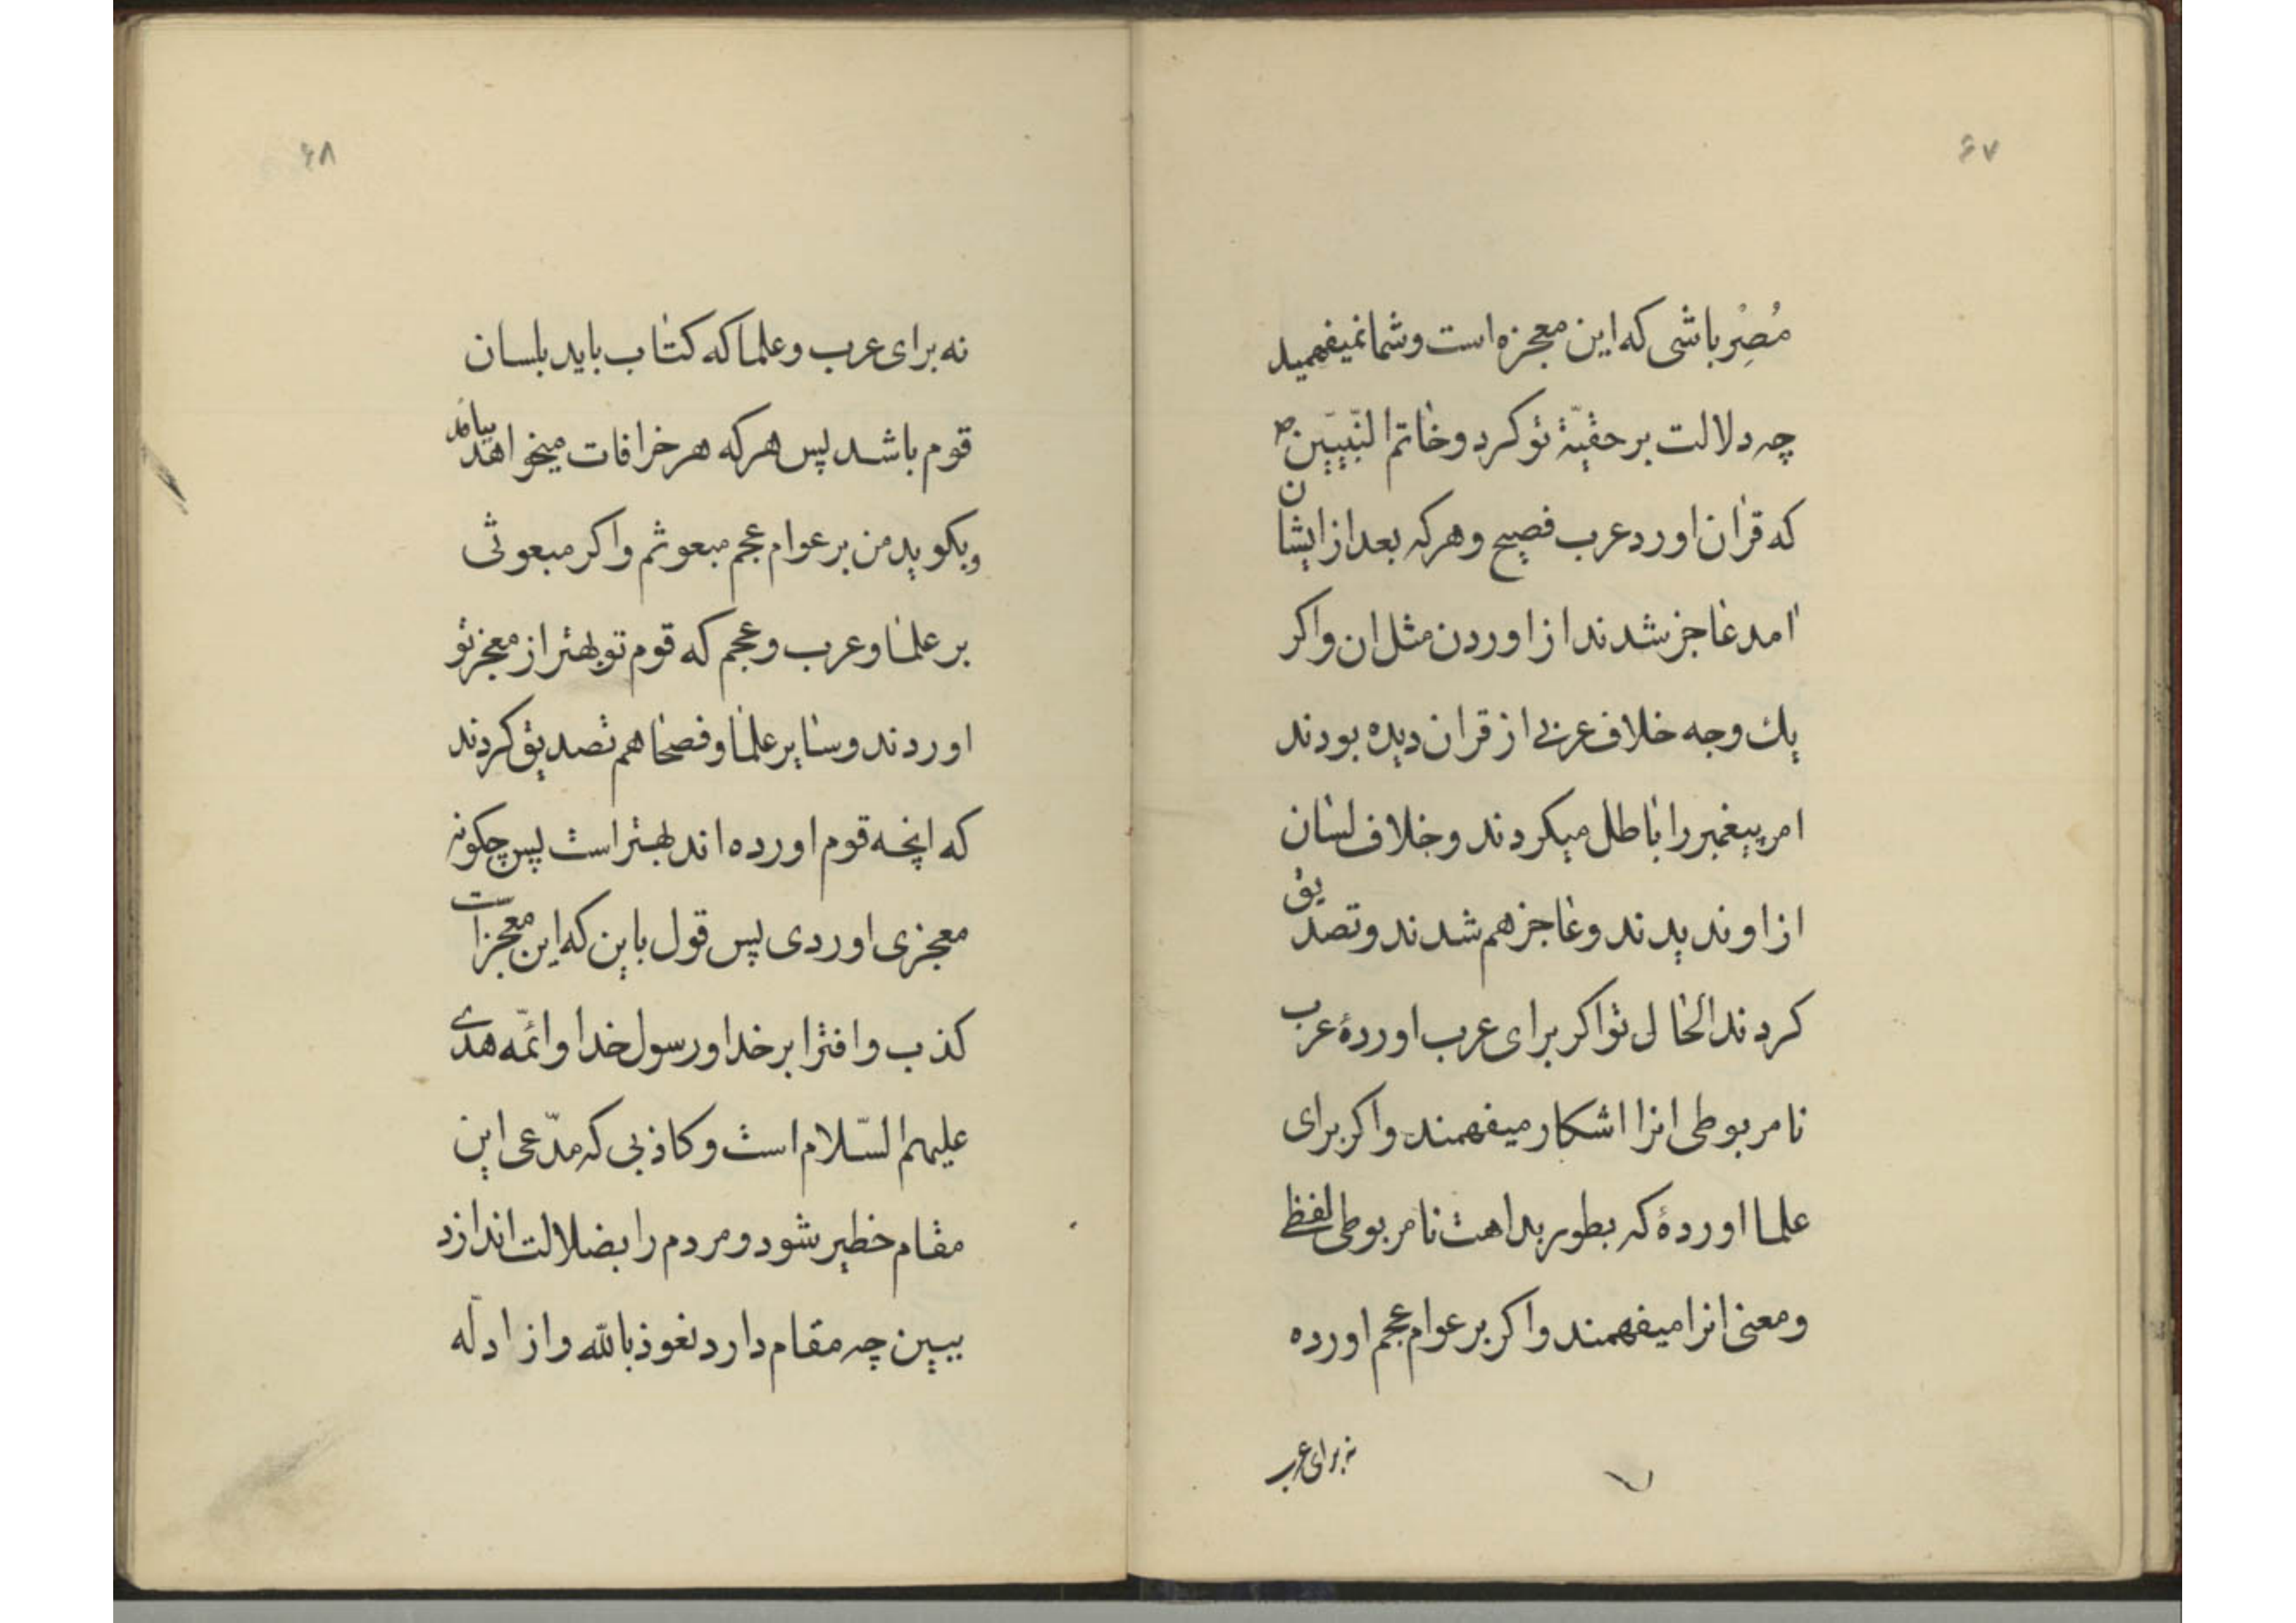 ۶۷
مُصِرْ باشی که این معجزه است و شما نمیفهمید
چه دلالت بر حقیّة تو کرد و خاتم النّبیّین ص
که قران اورد عرب فصیح و هر که بعد از ایشان
امد عاجز شدند از اوردن مثل ان و اکر
یك وجه خلاف عربی از قران دیده بودند
امر پیغمبر را باطل میکردند و خلاف لسان
از او ندیدند و عاجز هم شدند و تصدیق
کردند الحال تو اکر برای عرب اوردهٔ عرب
نامربوطی انرا اشکار میفهمند و اکر برای
علما اوردهٔ که بطور بداهت نامربوطی لفظ
و معنی انرا میفهمند و اکر بر عوام عجم اورده
نه برای عرب
۶۸
نه برای عرب و علما که کتاب باید بلسان
قوم باشد پس هر که هر خرافات میخواهد بیامد
و بکوید من بر عوام عجم مبعوثم و اکر مبعوثی
بر علما و عرب و عجم که قوم تو بهتر از معجز تو
اوردند و سایر علما و فصحا هم تصدیق کردند
که انچه قوم اورده اند بهتر است پس چکونه
معجزی اوردی پس قول باین که این معجز است
کذب و افترا بر خدا و رسول خدا و ائمّه هدی
علیهم السّلام است و کاذبی که مدّعی این
مقام خطیر شود و مردم را بضلالت اندازد
ببین چه مقام دارد نعوذ بالله و از ادله